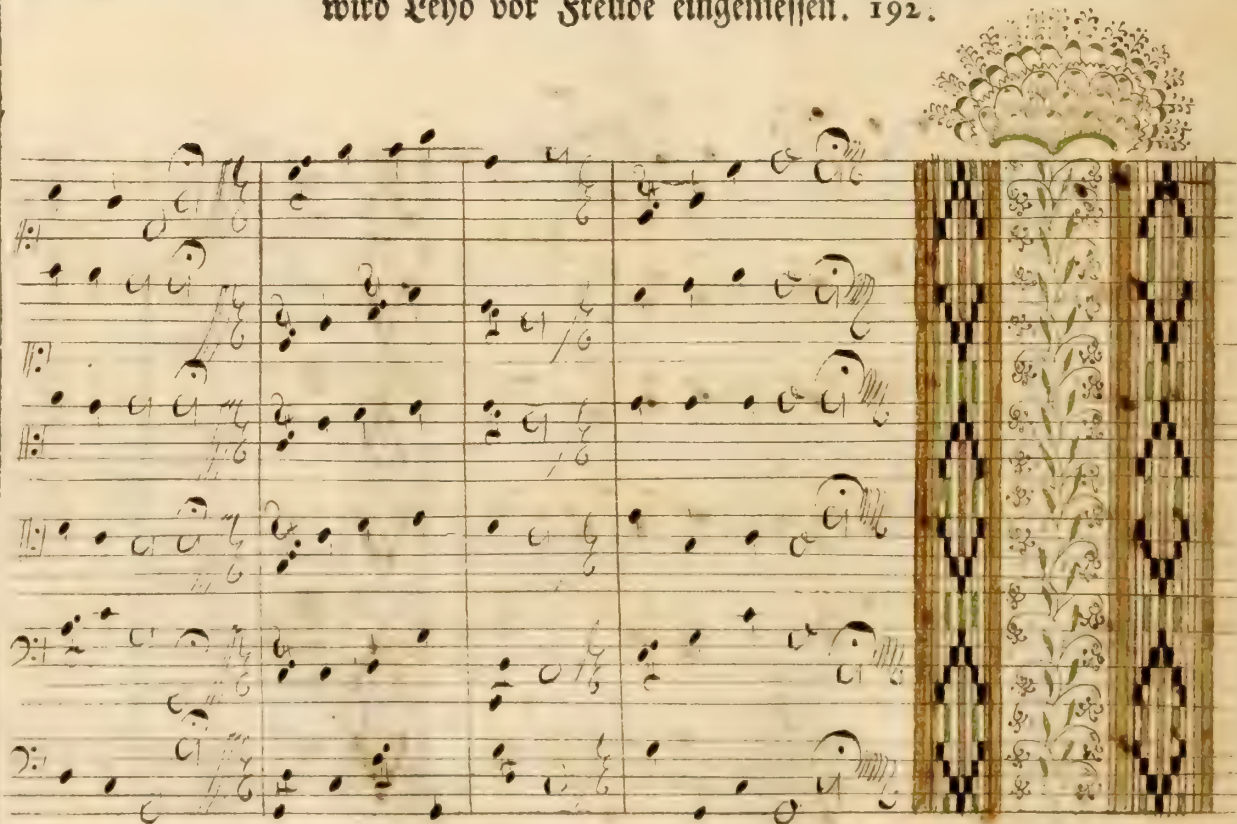 wird Leyd vor Freude eingemessen. 192.